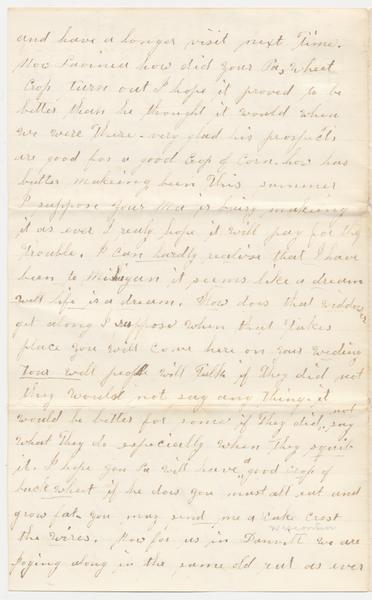 and have a longer visit next Time.
Now Lavinea how did your Pa, Wheat
Crop turn out I hope it proved to be
better than he thought it would when
we were There - very glad his prospects
are good for a good Crop of Corn. how has
butter makeing been This summer
I suppose your Ma is busy makeing
it as ever I realy hope it will pay for the
trouble. I can hardly realise that I have
been to Michigan it seems like a dream
well life is a dream. How does that
get along I suppose when that takes
place you will come here on your weding
Tour well people will Talk if They did not
they would not say any thing. it
would be better for some if They did not say
what They do especially when they
it. I hope you Pa will have a good Crop of
buck wheat if he does you must all eat and
grow fat. you may send me a Cake Crost
the wires. Now for us in we are
joging along in the same old rut as ever